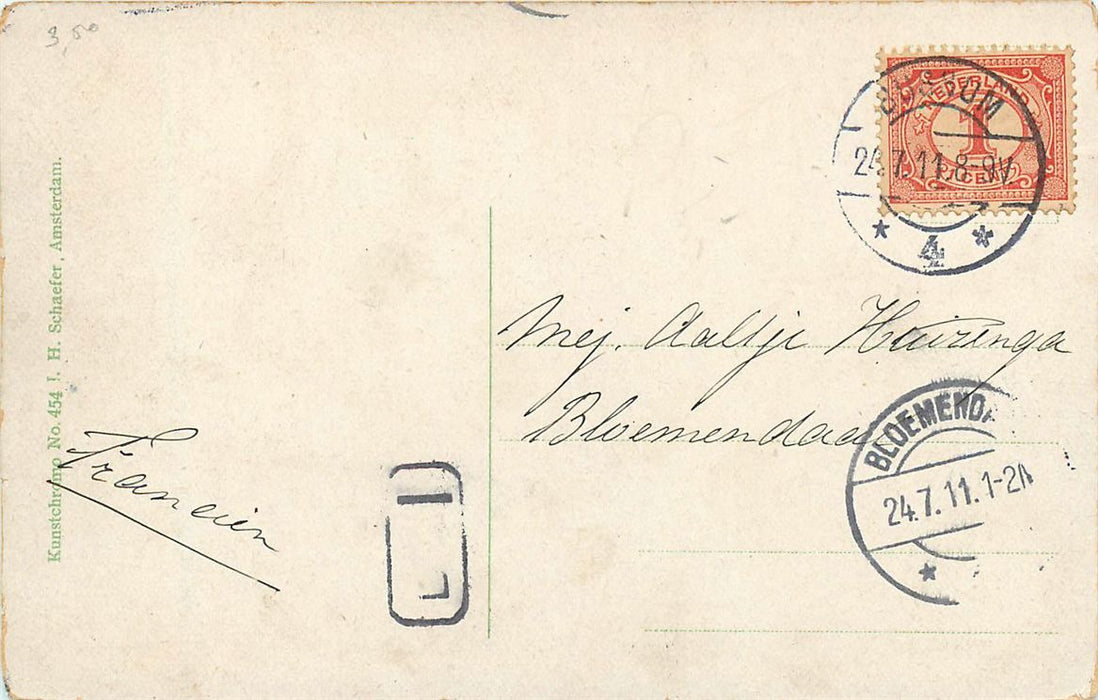 3,50
Kunstchromo No. 454 J. H. Schaefer, Amsterdam.
NEDERLAND
1
CENT
BUSSUM
24.7.11.8-9V
4
Mej. Aaltje Huizinga
Bloemendaal
BLOEMENDA
24.7.11.1-2N
Francien